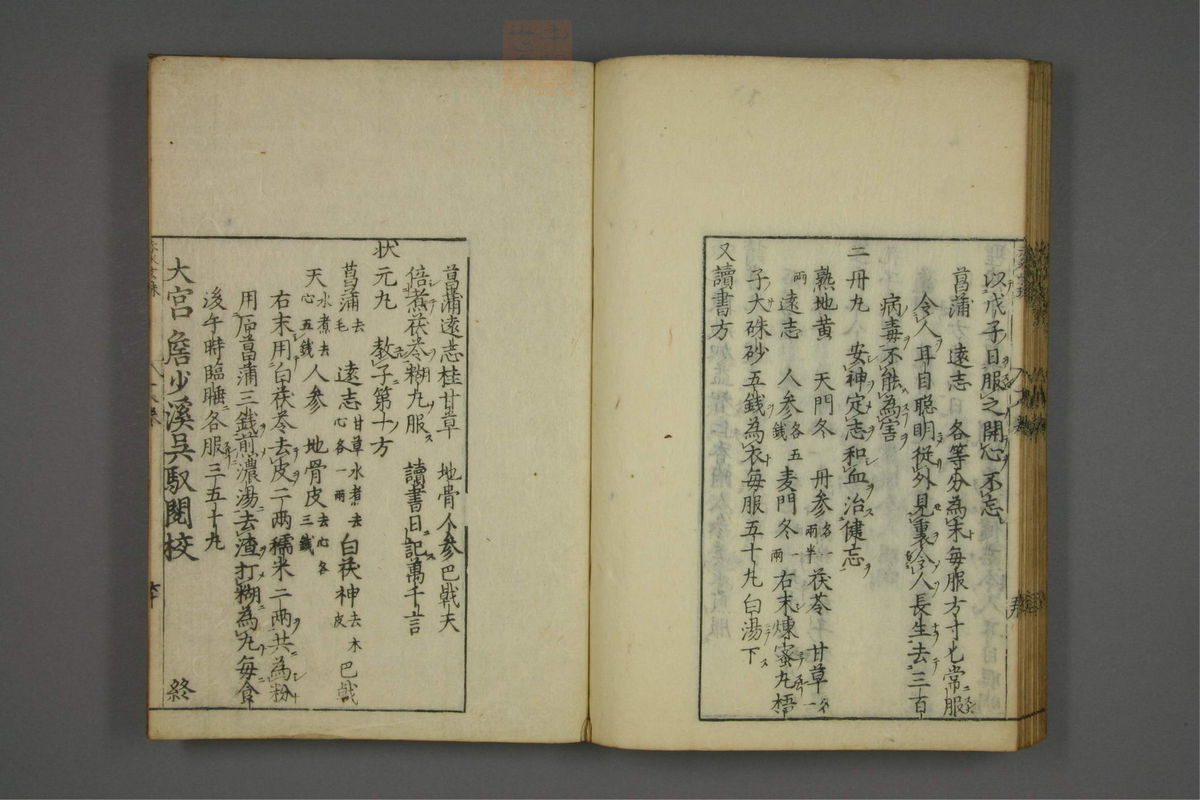 以戊子日服之開心不忘
菖蒲 遠志 各等分為末每服方寸七常服
令人耳目聰明從外見裏令人長生去三百
病毒不能為害
二丹丸 安神定志和血治健忘
熟地黄 天門冬 丹參各一兩半 茯苓 甘草各一
兩 遠志 人參各五錢 麦門冬一兩 右末煉蜜丸梧
子大硃砂五錢為衣每服五十丸白湯下
又讀書方
菖蒲遠志桂甘草 地骨人參巴戟天
倍煮茯苓糊丸服 讀書日記萬千言
状元丸 教子第十方
菖蒲去毛 遠志甘草水煮去心各一兩 白茯神去木皮 巴戟
天水煮去心五錢 人參 地骨皮去心各三錢
右末用白茯苓去皮二兩糯米二兩共為粉
用石菖蒲三錢煎濃湯去渣打糊為丸每食
後午時臨睡各服三五十丸
大宮 詹少溪吳馭閱校 終